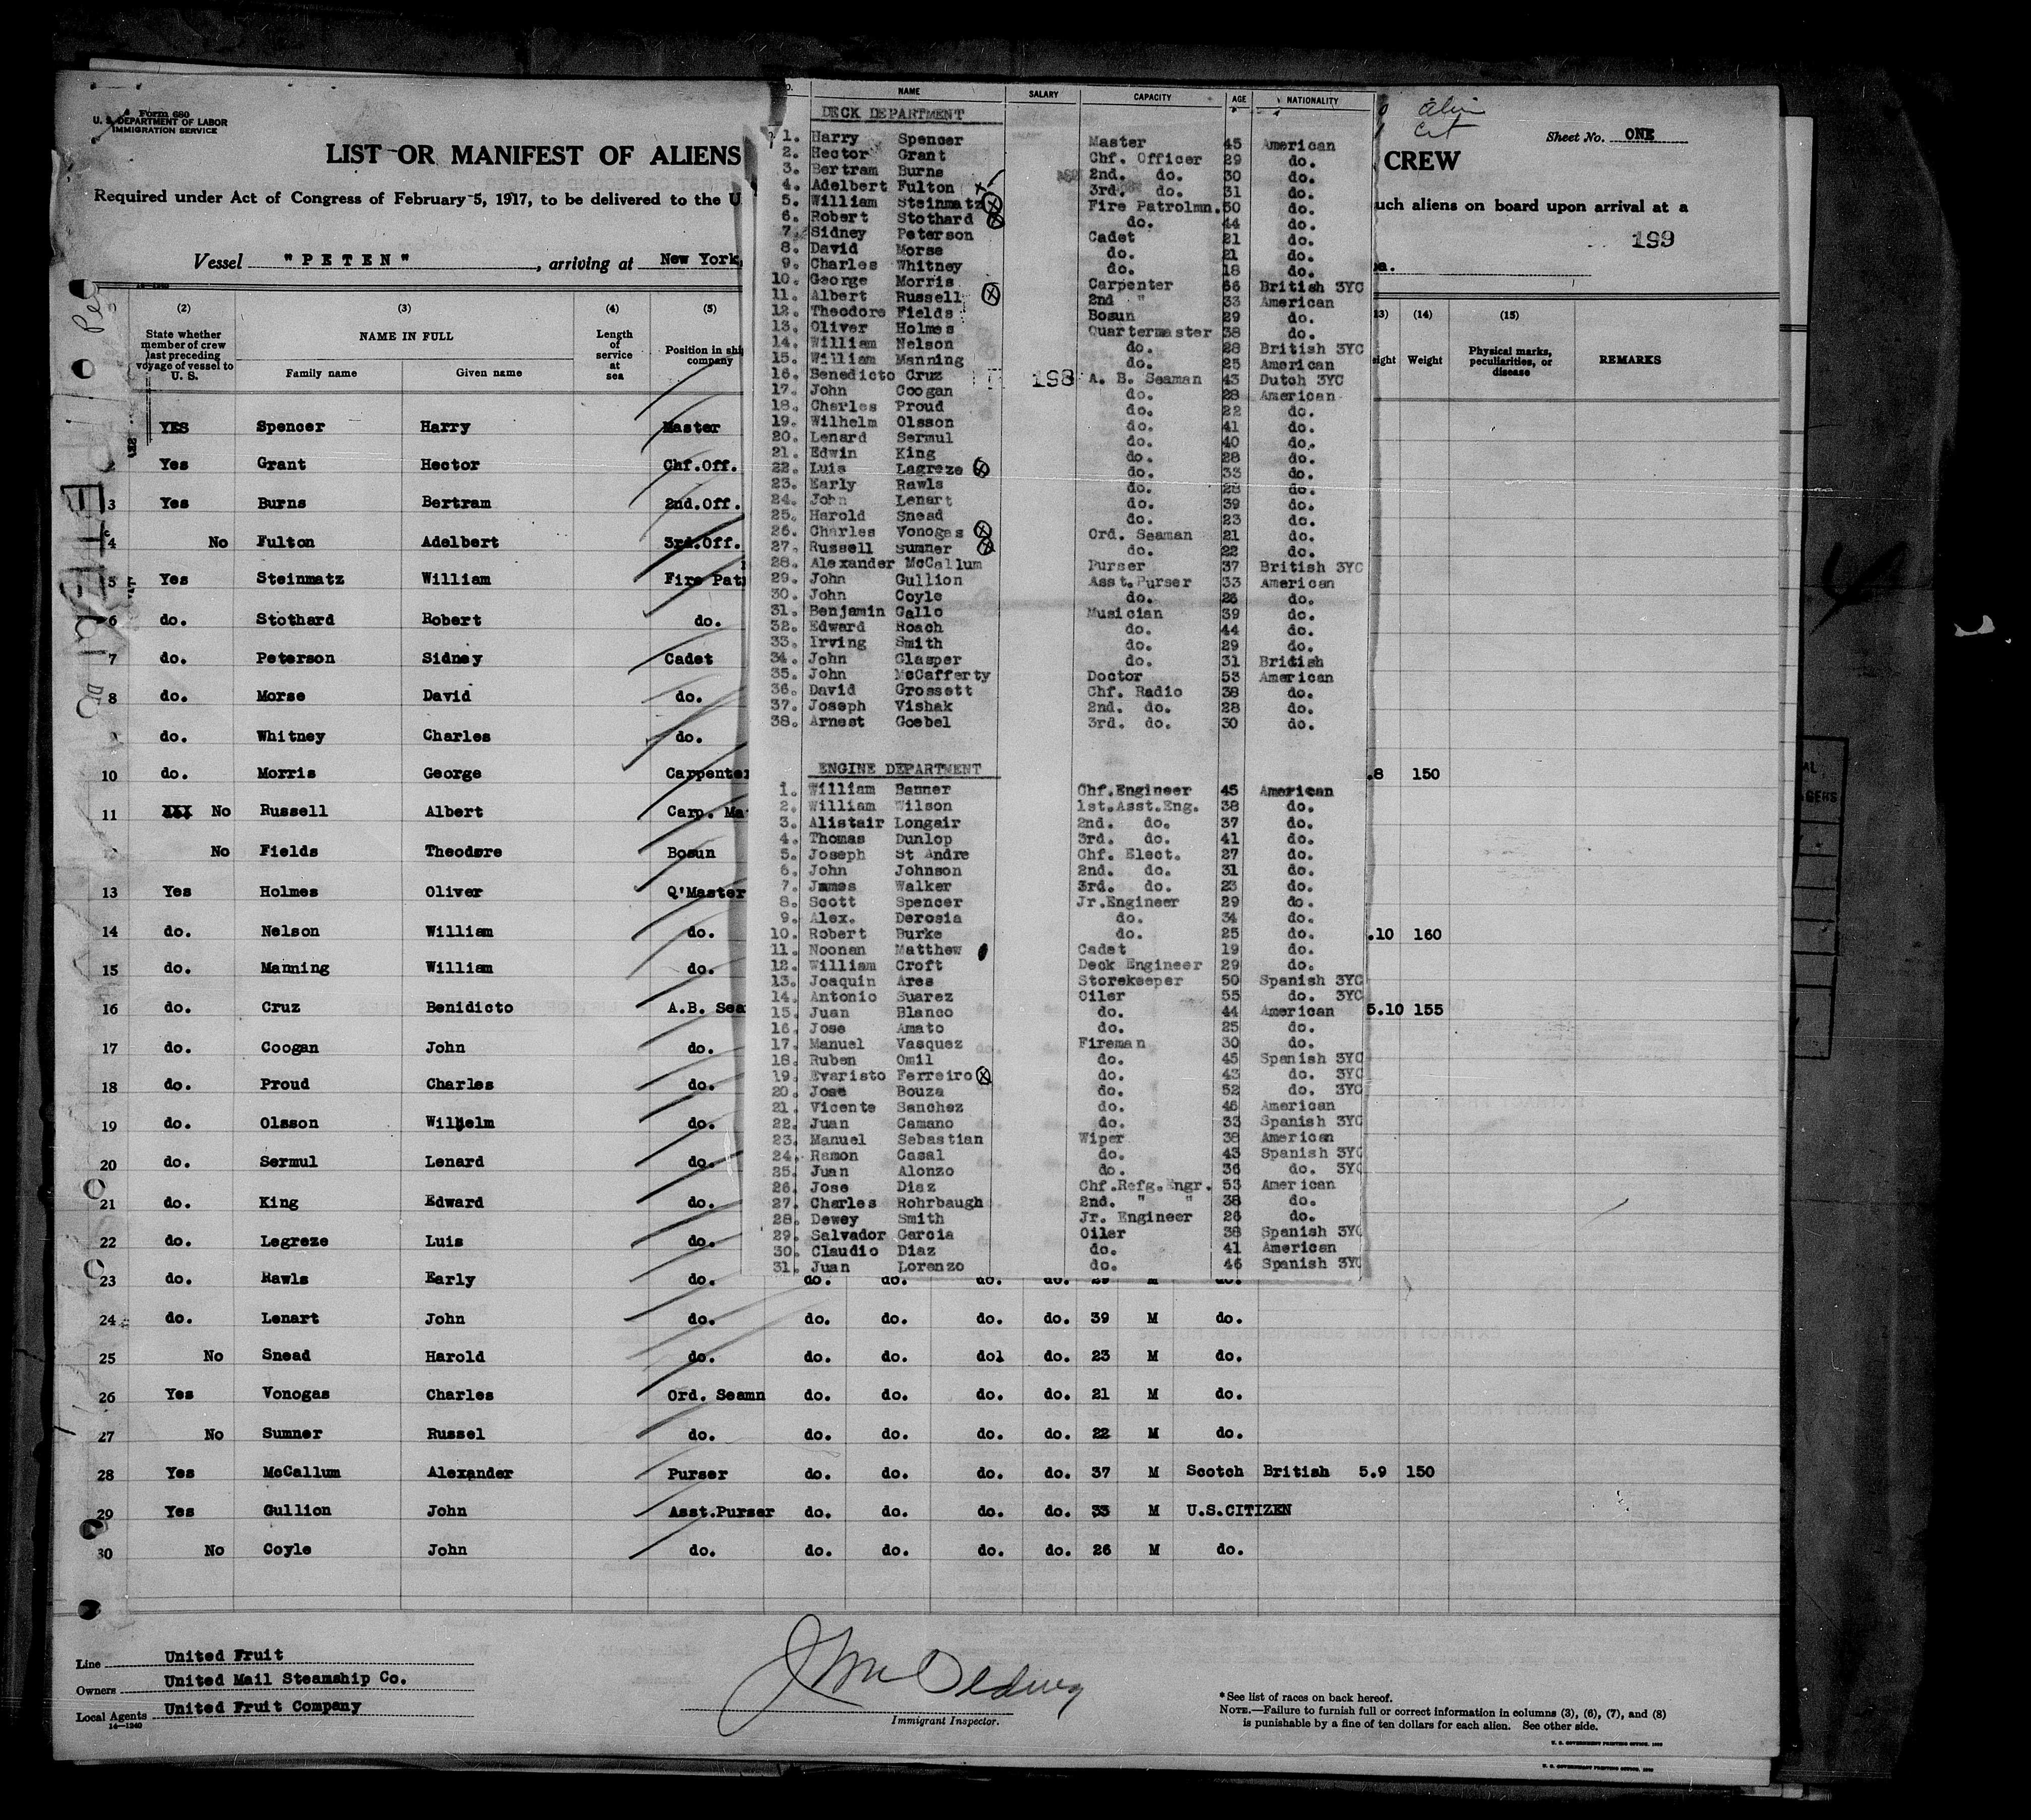 Form 680
U. S. DEPARTMENT OF LABOR
IMMIGRATION SERVICE
LIST OR MANIFEST OF ALIENS
CREW
Sheet No. ONE
Required under Act of Congress of February 5, 1917, to be delivered to the U
uch aliens on board upon arrival at a
199
Vessel "PETEN", arriving at New York,
(2) (3) (4) (5)
State whether member of crew last preceding voyage of vessel to U. S.
NAME IN FULL
Family name Given name
Length of service at sea
Position in ship company
13) (14) (15)
ight Weight Physical marks, peculiarities, or disease REMARKS
YES Spencer Harry Master
2 Yes Grant Hector Chf.Off.
3 Yes Burns Bertram 2nd.Off.
4 No Fulton Adelbert 3rd.Off.
5 Yes Steinmatz William Fire Pat
6 do. Stothard Robert do.
7 do. Peterson Sidney Cadet
8 do. Morse David do.
do. Whitney Charles do.
10 do. Morris George Carpenter .8 150
11 No Russell Albert Carp. Ma
No Fields Theodore Bosun
13 Yes Holmes Oliver Q'Master
14 do. Nelson William do. .10 160
15 do. Manning William do.
16 do. Cruz Benidicto A.B. Sea 5.10 155
17 do. Coogan John do.
18 do. Proud Charles do.
19 do. Olsson Wilhelm do.
20 do. Sermul Lenard do.
21 do. King Edward do.
22 do. Legreze Luis do.
23 do. Rawls Early do. do. do. do. do.
24 do. Lenart John do. do. do. do. do. 39 M do.
25 No Snead Harold do. do. do. dol do. 23 M do.
26 Yes Vonogas Charles Ord. Seamn do. do. do. do. 21 M do.
27 No Sumner Russel do. do. do. do. do. 22 M do.
28 Yes McCallum Alexander Purser do. do. do. do. 37 M Scotch British 5.9 150
29 Yes Gullion John Asst.Purser do. do. do. do. 33 M U.S.CITIZEN
30 No Coyle John do. do. do. do. do. 26 M do.
NAME SALARY CAPACITY AGE NATIONALITY
DECK DEPARTMENT
1. Harry Spencer Master 45 American
2. Hector Grant Chf. Officer 29 do.
3. Bertram Burns 2nd. do. 30 do.
4. Adelbert Fulton 3rd. do. 31 do.
5. William Steinmatz Fire Patrolmn. 50 do.
6. Robert Stothard do. 44 do.
7. Sidney Peterson Cadet 21 do.
8. David Morse do. 21 do.
9. Charles Whitney do. 18 do.
10. George Morris Carpenter 66 British 3YC
11. Albert Russell 2nd " 33 American
12. Theodore Fields Bosun 29 do.
13. Oliver Holmes Quartermaster 38 do.
14. William Nelson do. 28 British 3YC
15. William Manning do. 25 American
16. Benedicto Cruz 198 A. B. Seaman 43 Dutch 3YC
17. John Coogan do. 28 American
18. Charles Proud do. 22 do.
19. Wilhelm Olsson do. 41 do.
20. Lenard Sermul do. 40 do.
21. Edwin King do. 28 do.
22. Luis Lagreze do. 33 do.
23. Early Rawls do. 28 do.
24. John Lenart do. 39 do.
25. Harold Snead do. 23 do.
26. Charles Vonogas Ord. Seaman 21 do.
27. Russell Sumner do. 22 do.
28. Alexander McCallum Purser 37 British 3YC
29. John Gullion Asst.Purser 33 American
30. John Coyle do. 26 do.
31. Benjamin Gallo Musician 39 do.
32. Edward Roach do. 44 do.
33. Irving Smith do. 29 do.
34. John Glasper do. 31 British
35. John McCafferty Doctor 53 American
36. David Grossett Chf. Radio 38 do.
37. Joseph Vishak 2nd. do. 28 do.
38. Arnest Goebel 3rd. do. 30 do.
ENGINE DEPARTMENT
1. William Banner Chf.Engineer 45 American
2. William Wilson 1st.Asst.Eng. 38 do.
3. Alistair Longair 2nd. do. 37 do.
4. Thomas Dunlop 3rd. do. 41 do.
5. Joseph St Andre Chf. Elect. 27 do.
6. John Johnson 2nd. do. 31 do.
7. James Walker 3rd. do. 23 do.
8. Scott Spencer Jr.Engineer 29 do.
9. Alex. Derosia do. 34 do.
10. Robert Burke do. 25 do.
11. Noonan Matthew Cadet 19 do.
12. William Croft Deck Engineer 29 do.
13. Joaquin Ares Storekeeper 50 Spanish 3YC
14. Antonio Suarez Oiler 55 do. 3YC
15. Juan Blanco do. 44 American
16. Jose Amato do. 25 do.
17. Manuel Vasquez Fireman 30 do.
18. Ruben Omil do. 45 Spanish 3YC
19. Evaristo Ferreiro do. 43 do. 3YC
20. Jose Bouza do. 52 do. 3YC
21. Vicente Sanchez do. 46 American
22. Juan Camano do. 33 Spanish 3YC
23. Manuel Sebastian Wiper 38 American
24. Ramon Casal do. 43 Spanish 3YC
25. Juan Alonzo do. 36 do. 3YC
26. Jose Diaz Chf.Refg.Engr. 53 American
27. Charles Rohrbaugh 2nd. " " 38 do.
28. Dewey Smith Jr. Engineer 26 do.
29. Salvador Garcia Oiler 38 Spanish 3YC
30. Claudio Diaz do. 41 American
31. Juan Lorenzo do. 46 Spanish 3YC
Line United Fruit
Owners United Mail Steamship Co.
Local Agents United Fruit Company
14—1240
Immigrant Inspector.
*See list of races on back hereof.
NOTE.—Failure to furnish full or correct information in columns (3), (6), (7), and (8)
is punishable by a fine of ten dollars for each alien. See other side.
U. S. GOVERNMENT PRINTING OFFICE.
U. S. GOVERNMENT PRINTING OFFICE.